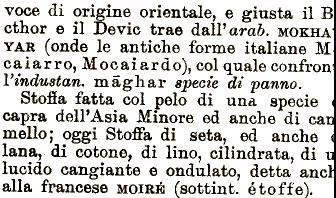 voce di origine orientale, e giusta il B
cthor e il Devic trae dall'arab. MOKHA
YAR (onde le antiche forme italiane M
caiarro, Mocaiardo), col quale confron
l'industan. māghar specie di panno.
Stoffa fatta col pelo di una specie
capra dell'Asia Minore ed anche di can
mello; oggi Stoffa di seta, ed anche
lana, di cotone, di lino, cilindrata, di u
lucido cangiante e ondulato, detta anch
alla francese MOIRÉ (sottint. étoffe).